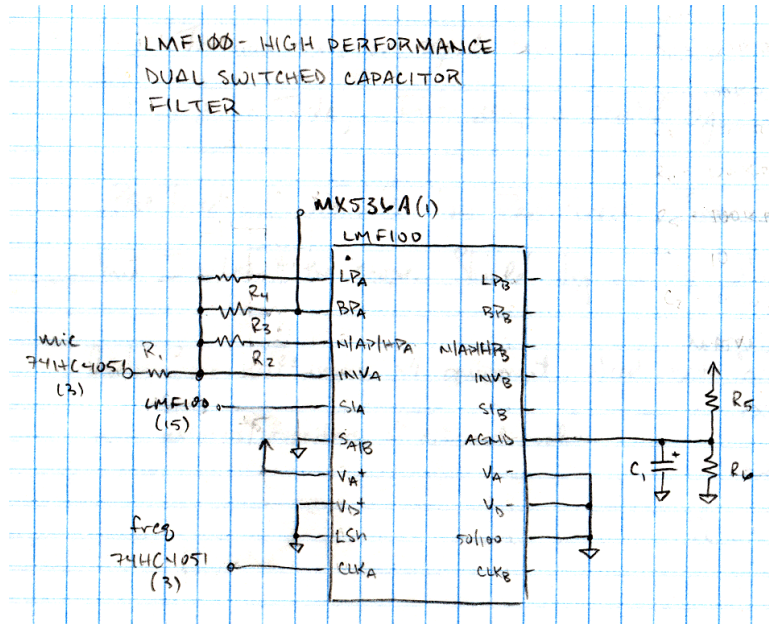 LMF100 - HIGH PERFORMANCE
DUAL SWITCHED CAPACITOR
FILTER
MX536A(1)
LMF100
LPA
BPA
N/AP/HPA
INVA
S1A
SA/B
VA+
VD+
LSh
CLKA
LPB
BPB
N/AP/HPB
INVB
S1B
AGND
VA-
VD-
50/100
CLKB
R4
R3
R2
R1
mic
74HC4051
(3)
LMF100
(15)
freq
74HC4051
(3)
R5
R6
C1
+